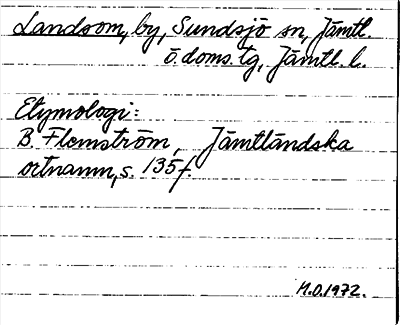 Landsom, by, Sundsjö sn, Jämtl.
ö. doms. tg, Jämtl. l.
Etymologi:
B. Flemström, Jämtländska
ortnamn, s. 135 f.
M.O.1972.